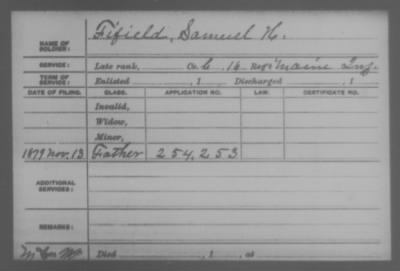 NAME OF SOLDIER: Fifield, Samuel H.
SERVICE: Late rank, Co. 16 Reg't Maine Inf.
TERM OF SERVICE: Enlisted , 1 Discharged , 1
DATE OF FILING. CLASS. APPLICATION NO. LAW. CERTIFICATE NO.
Invalid,
Widow,
Minor,
1879 Nov. 13 Father 254,253
ADDITIONAL SERVICES:
REMARKS:
Died , 1 , at